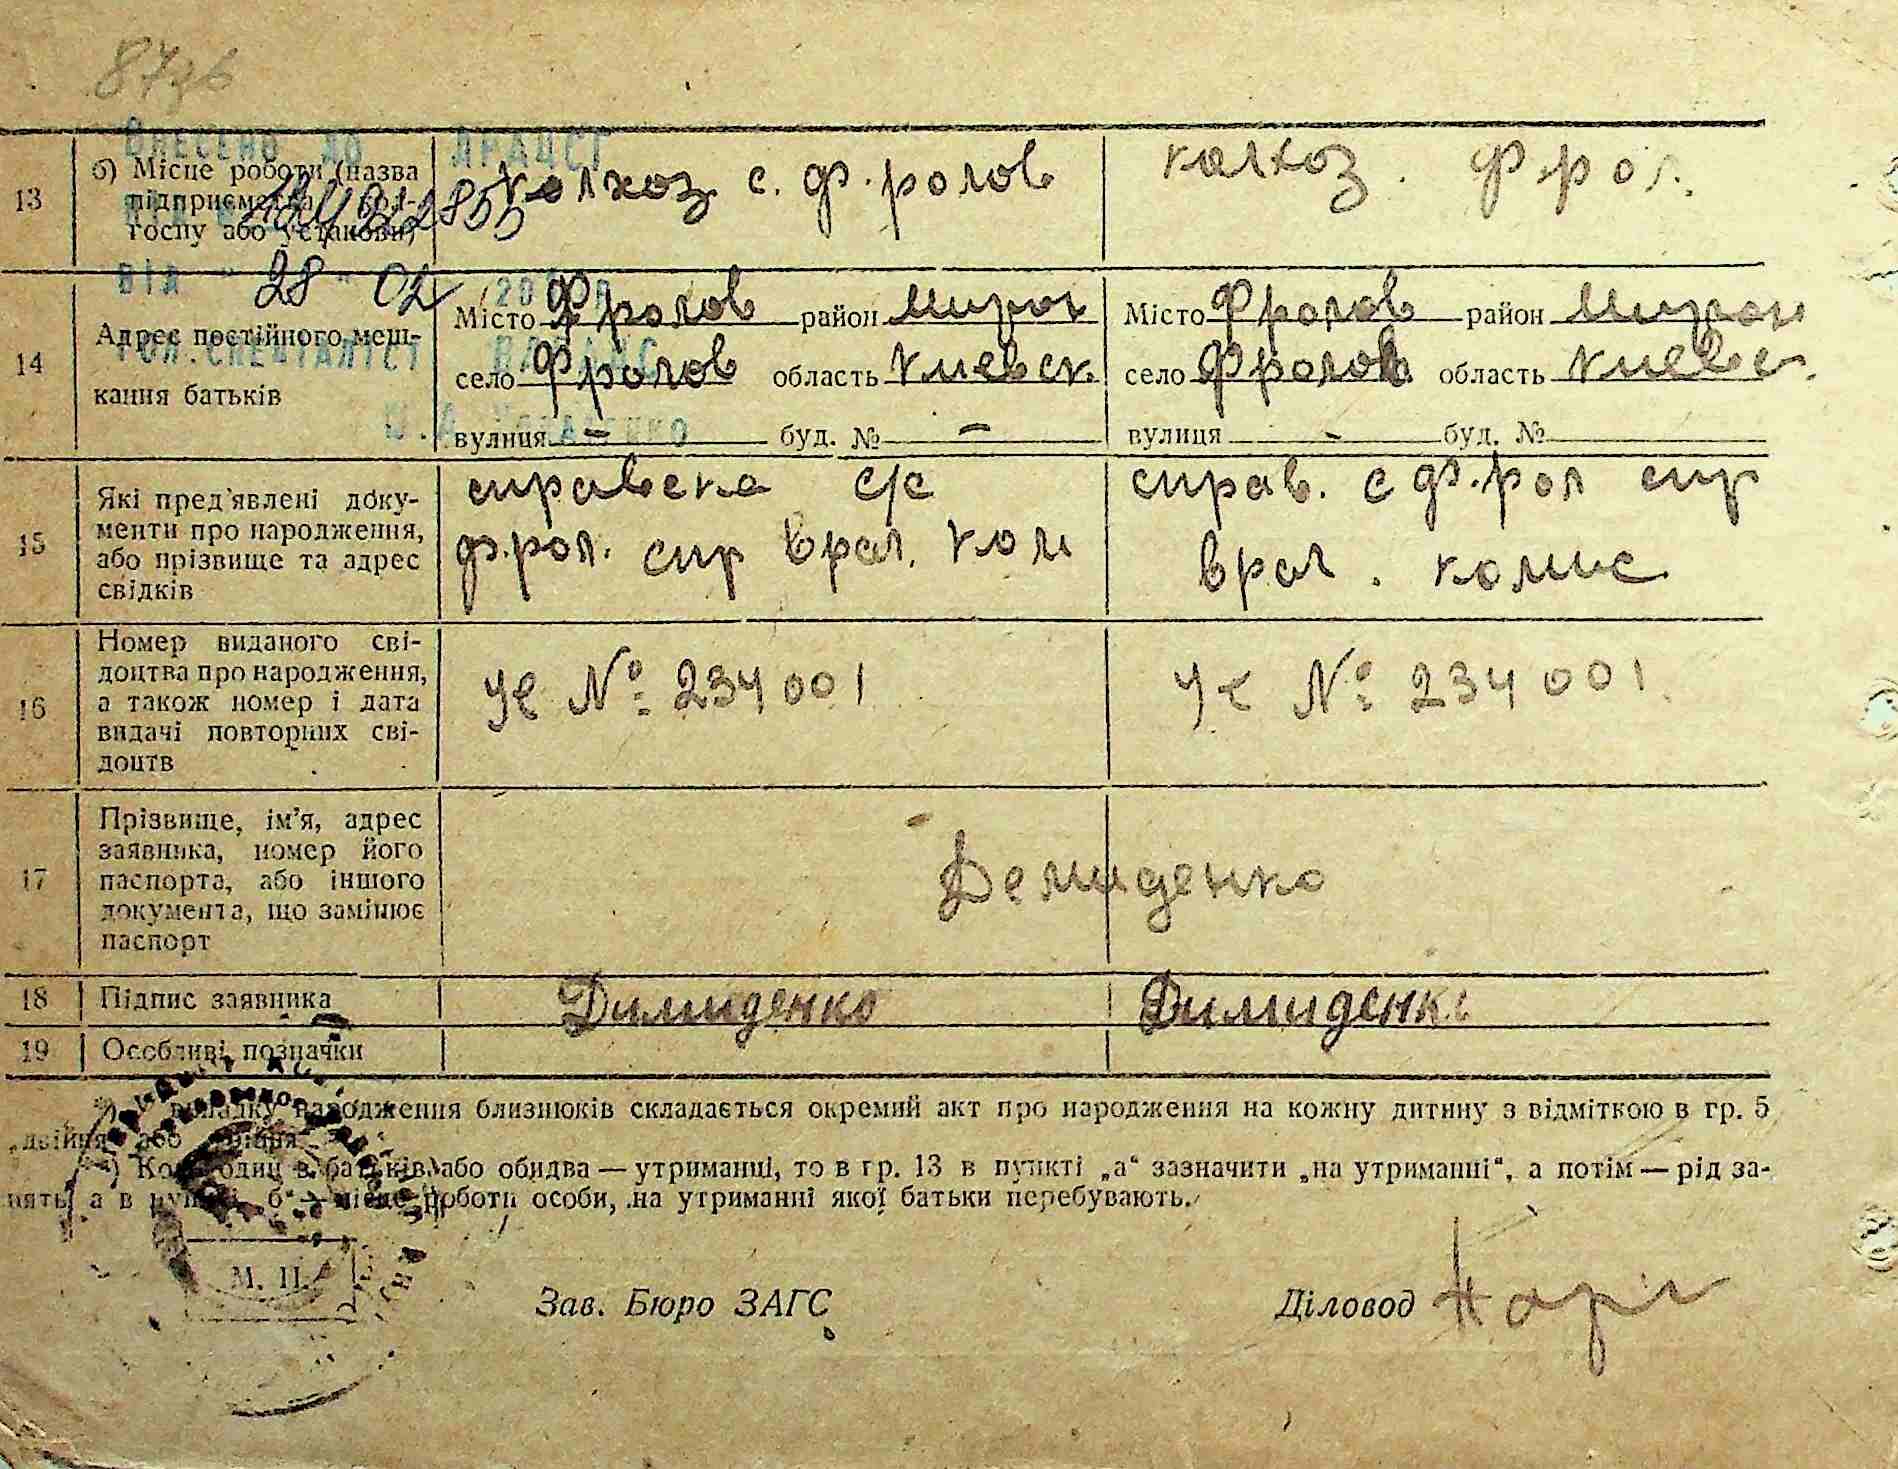 87зв
ВНЕСЕНО ДО ДРАЦСГ
28 02
ВІД 20
ГОЛ. СПЕЦІАЛІСТ
13 б) Місце роботи (назва підприємства, кол-
госпу або установи)
колхоз с. Ф.ролов
колхоз. Ф.рол.
14 Адрес постійного меш-
кання батьків
Місто Фролов район Мирон
село Фролов область Киевск.
вулиця - буд. № -
Місто Фролов район Мирон
село Фролов область Киевс.
вулиця - буд. №
15 Які пред'явлені доку-
менти про народження,
або прізвище та адрес
свідків
справска с/с
ф.рол. спр врач. ком
справ. с ф.рол спр
врач. комис
16 Номер виданого сві-
доцтва про народження,
а також номер і дата
видачі повторних сві-
доцтв
УС № 234001
УС № 234001
17 Прізвище, ім'я, адрес
заявника, номер його
паспорта, або іншого
документа, що замінює
паспорт
Демиденко
18 Підпис заявника
Димиденко
Димиденк
19 Особливі позначки
випадку народження близнюків складається окремий акт про народження на кожну дитину з відміткою в гр. 5
„двійня або
Коли один з батьків або обидва — утриманці, то в гр. 13 в пункті „а“ зазначити „на утриманні“, а потім — рід за-
нять, а в пункті „б“ — місце роботи особи, на утриманні якої батьки перебувають.
М. П.
Зав. Бюро ЗАГС
Діловод